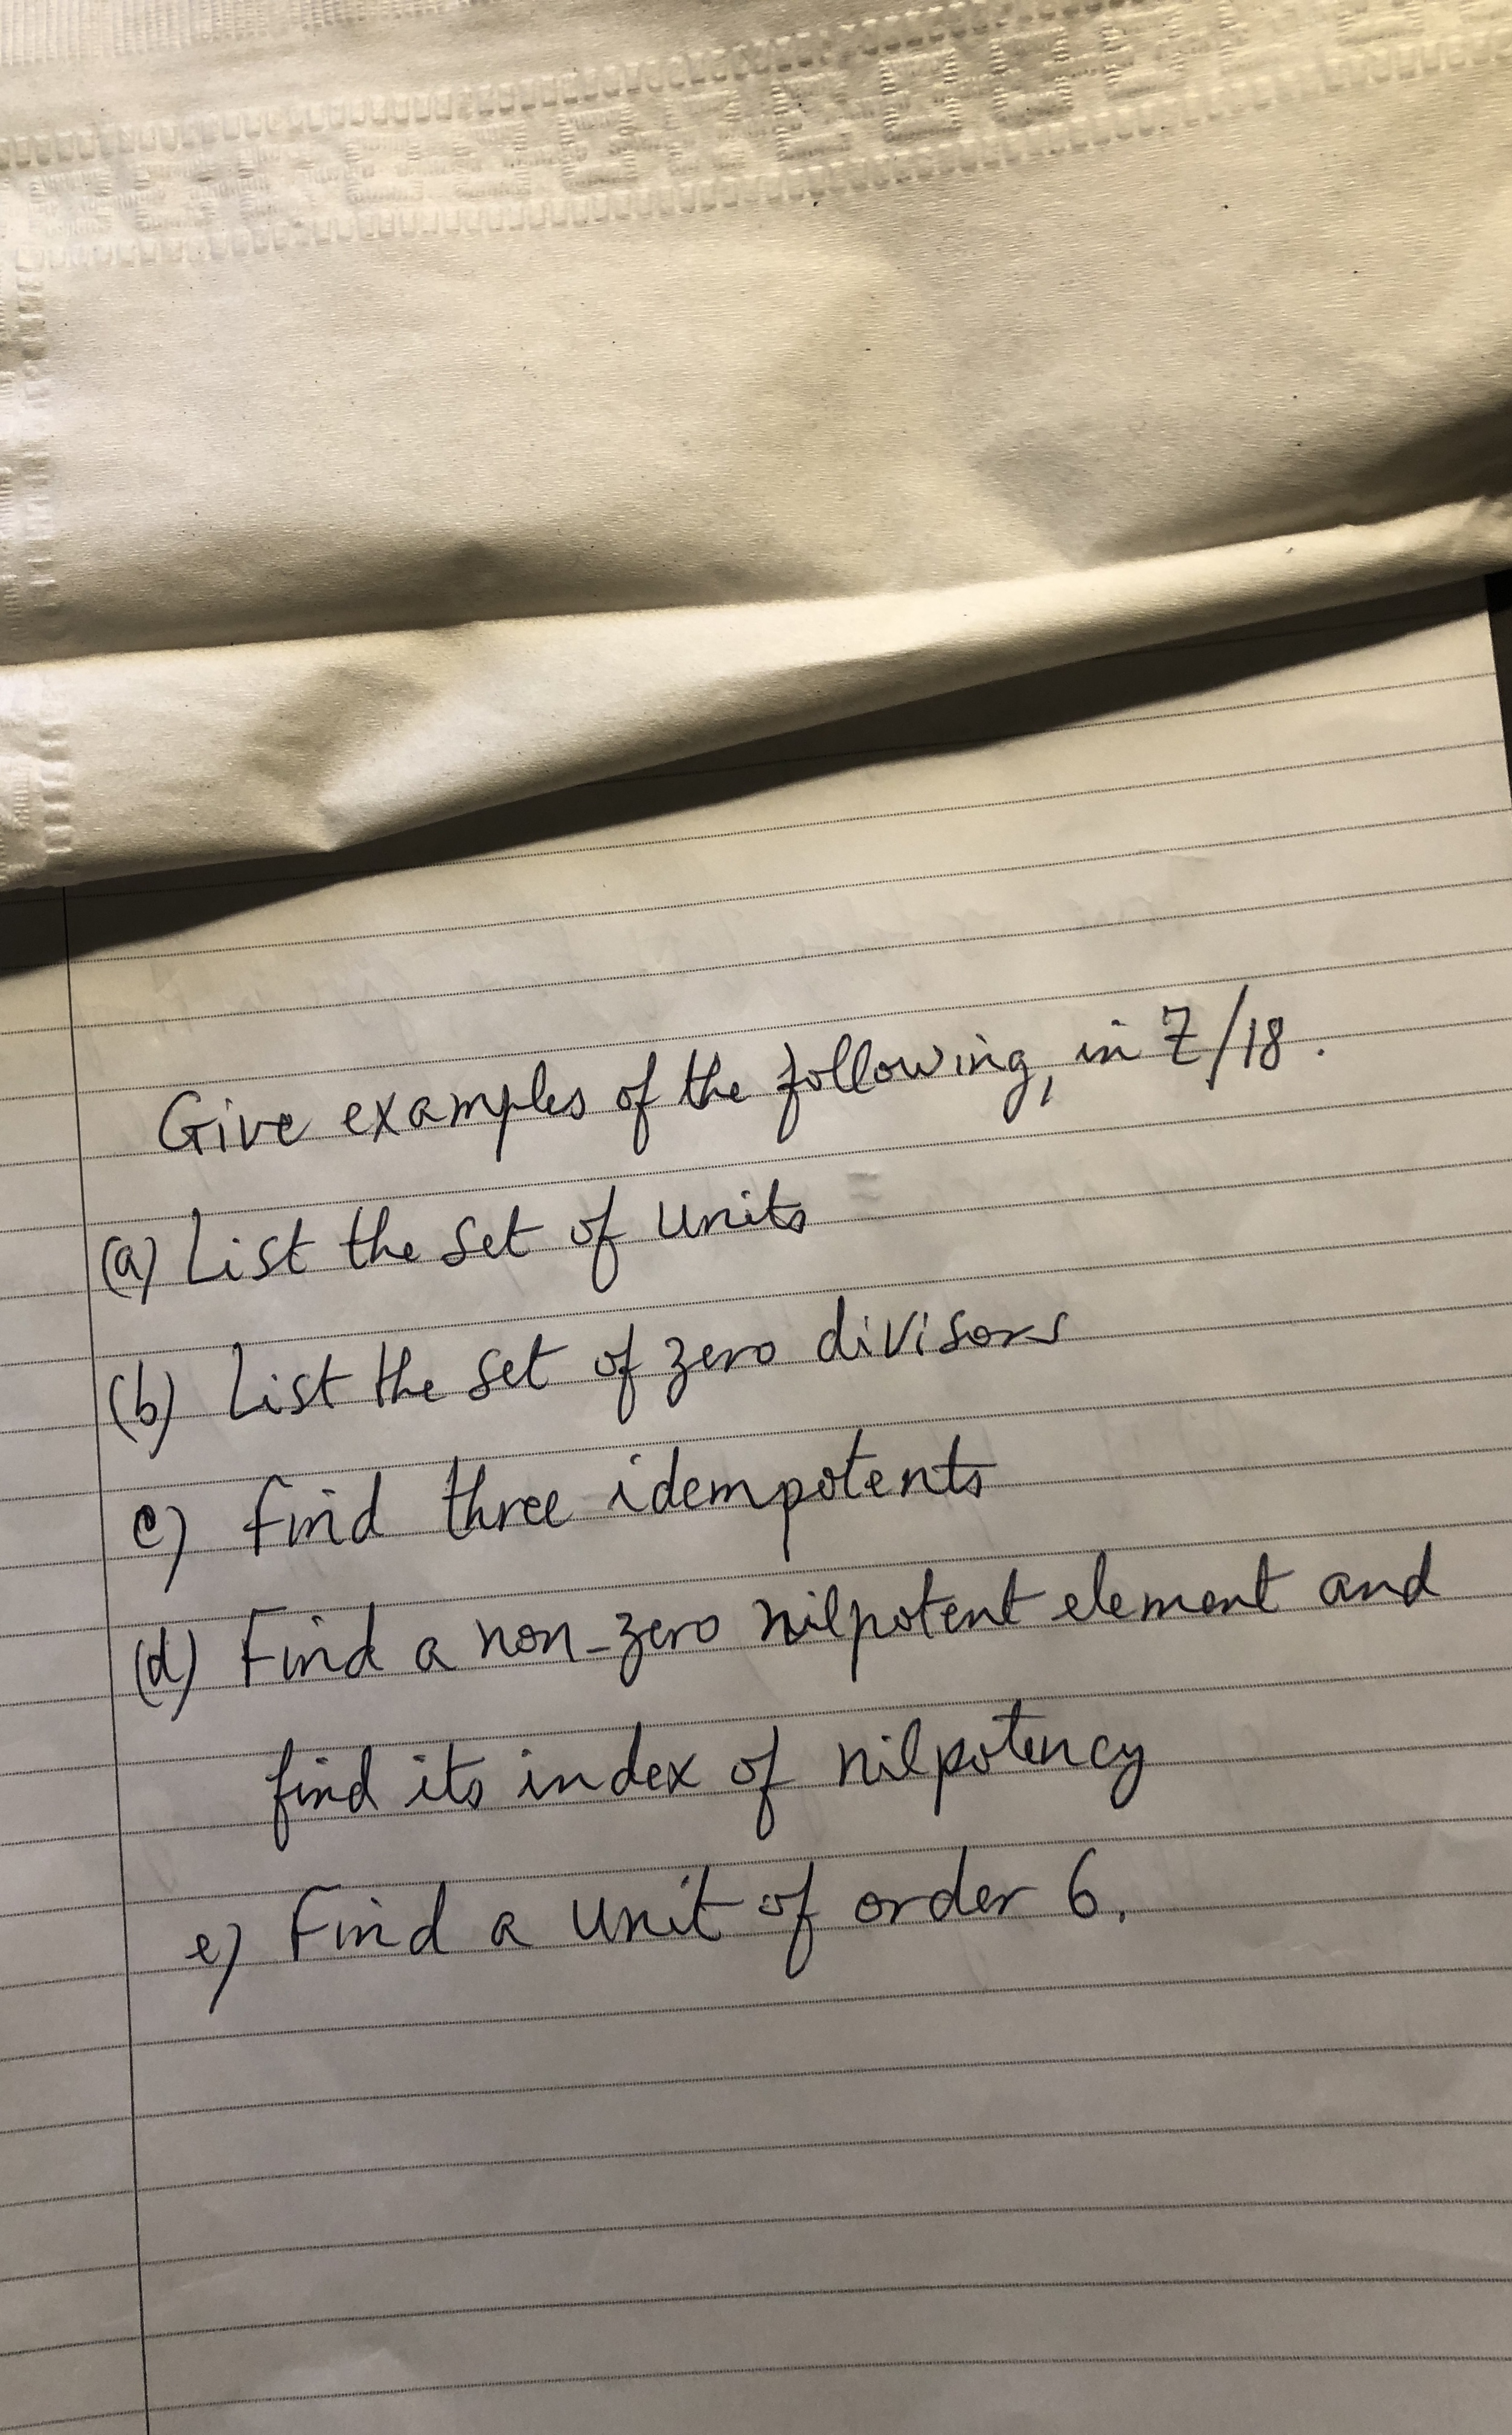 Give examples of the following, in Z/18.
(a) List the set of units
(b) List the set of zero divisors
c) Find three idempotents
(d) Find a non-zero nilpotent element and
find its index of nilpotency
e) Find a unit of order 6.